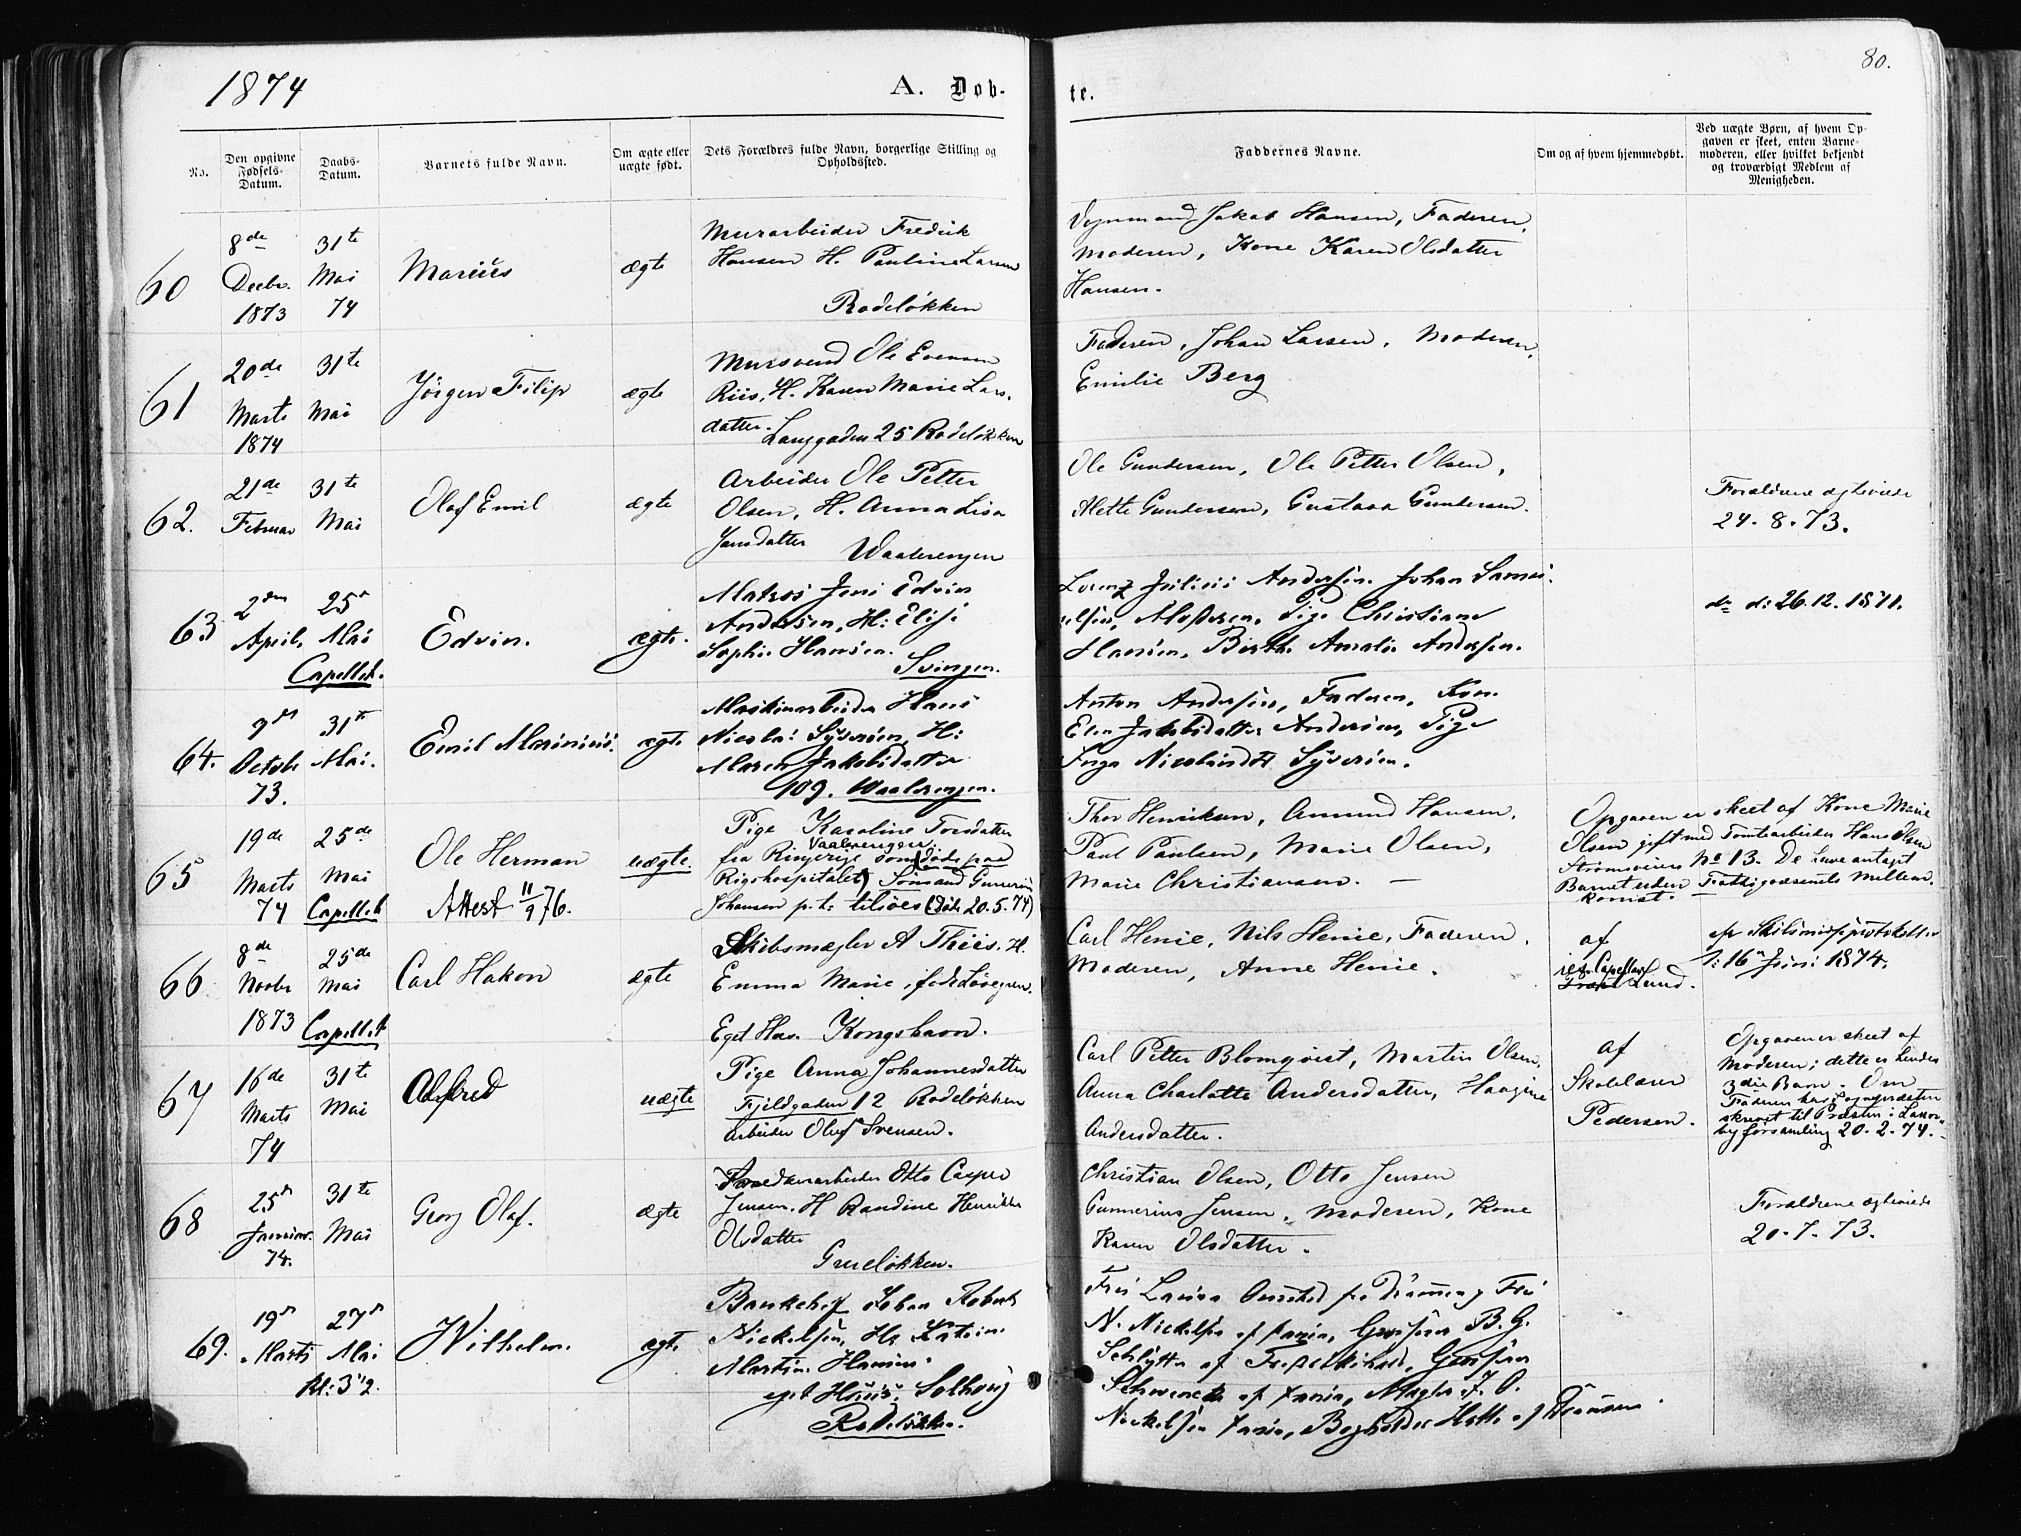 1874
A. Døb-
te.
80.
No.
Den opgivne
Fødsels-
Datum.
Daabs-
Datum.
Barnets fulde Navn.
Om ægte eller
uægte født.
Dets Forældres fulde Navn, borgerlige Stilling og
Opholdssted.
Faddernes Navne.
Om og af hvem hjemmedøbt.
Ved uægte Børn, af hvem Op-
gaven er skeet, enten Barne-
moderen, eller hvilket bekjendt
og troværdigt Medlem af
Menigheden.
60
8de
Decbr.
1873
31te
Mai
74
Marius
ægte
Murarbeider Fredrik
Hansen H. Pauline Larsen
Rodeløkken
Vognmand Jakob Hansen, Faderen,
Moderen, Kone Karen Olsdatter
Hansen.
61
20de
Marts
1874
31te
Mai
Jørgen Filip
ægte
Mursvend Ole Evensen
Riis, H. Karen Marie Lars-
datter.
Langgaden 25 Rodeløkken
Faderen, Johan Larsen, Moderen,
Emilie Berg
62.
21de
Februar
31te
Mai
Olaf Emil
ægte
Arbeider Ole Petter
Olsen, H. Anna Lisa
Jansdatter
Waalerengen
Ole Gundersen, Ole Petter Olsen,
Alette Gundersen, Gustava Gundersen.
Forældrene ægteviede
24.8.73.
63
2den
April.
25de
Mai
Capellet.
Edvin.
ægte.
Matros Jens Edvin
Andersen, H: Elise
Sophie Hansen.
Svingen.
Lorenz Julius Andersen. Johan Samu-
elsen, Moderen, Pige Christiane
Hansen, Birthe Amalie Andersen.
do d: 26.12.1871.
64.
9de
Octobr
73.
31te
Mai.
Emil Marinius.
ægte
Maskinarbeider Hans
Nicolai Syversen, H:
Maren Jakobsdatter
109. Waalerengen.
Anton Andersen, Faderen, Kone
Elen Jakobsdatter Andersen, Pige
Inga Nicoline Syversen.
65
19de
Marts
74
25de
Mai
Capellet
Ole Herman
Attest 11/9 76.
uægte
Pige Karoline Torsdatter
Vaalerengen
fra Ringerige som døde paa
Rigshospitalet) Sømand Gunerius
Johansen p.t. tilsøes (død 20.5.74)
Thor Henriksen, Amund Hansen,
Paul Paulsen, Marie Olsen,
Marie Christiansen. —
Opgaven er skeet af Kone Marie
Olsen gift med Tomtearbeider Hans Olsen
Strømsveien No 13. De have antaget
Barnet uden Fattigvæsenets Mellem-
komst.
66
8de
Novbr
1873
25de
Mai
Capellet
Carl Hakon
ægte
Skibsmægler A Thiis, H.
Emma Marie, født Løvegren.
Eget Hus Kongshavn.
Carl Henie, Nils Henie, Faderen,
Moderen, Anne Henie.
af
Capellan
Lund.
1: 16 Juni 1874.
67
16de
Marts
74
31te
Mai
Alfred
uægte
Pige Anna Johannesdatter
Fjeldgaden 12 Rodeløkken
Arbeider Oluf Svensen.
Carl Petter Blomqvist, Martin Olsen,
Anna Charlotte Andersdatter, Haagine
Andersdatter.
af
Skolelærer
Pedersen.
Opgaven er skeet af
Moderen; dette er hendes
3die Barn. Om
Faderen har Sognepræsten
skrevet til Præsten i
forsamling 20.2.74.
68
25de
Januar
74.
31te
Mai
Georg Olaf.
ægte
Snedkerarbeider Otto Casper
Jensen. H Randine Henrikke
Olsdatter
Grueløkken.
Christian Olsen, Otto Jensen
Gunnerius Jensen, Moderen, Kone
Karen Olsdatter.
Forældrene ægteviede
20.7.73.
69.
19de
Marts
27de
Mai
Kl: 3½.
Wilhelm.
ægte
Bankchef Johan Robert
Nickelsen, H: Katrine
Martine Hansen.
eget Huus. Solhoug
Rodeløkken.
Fru Laura Omsted fra Drammen, Fru
N. Nickelsen af Xania, Grosserer B.G.
Schlytter af Fredrikshald, Grosserer
Schwencke af Xania, Mægler J.O.
Nickelsen Xania, Bogholder Holte af Drammen.